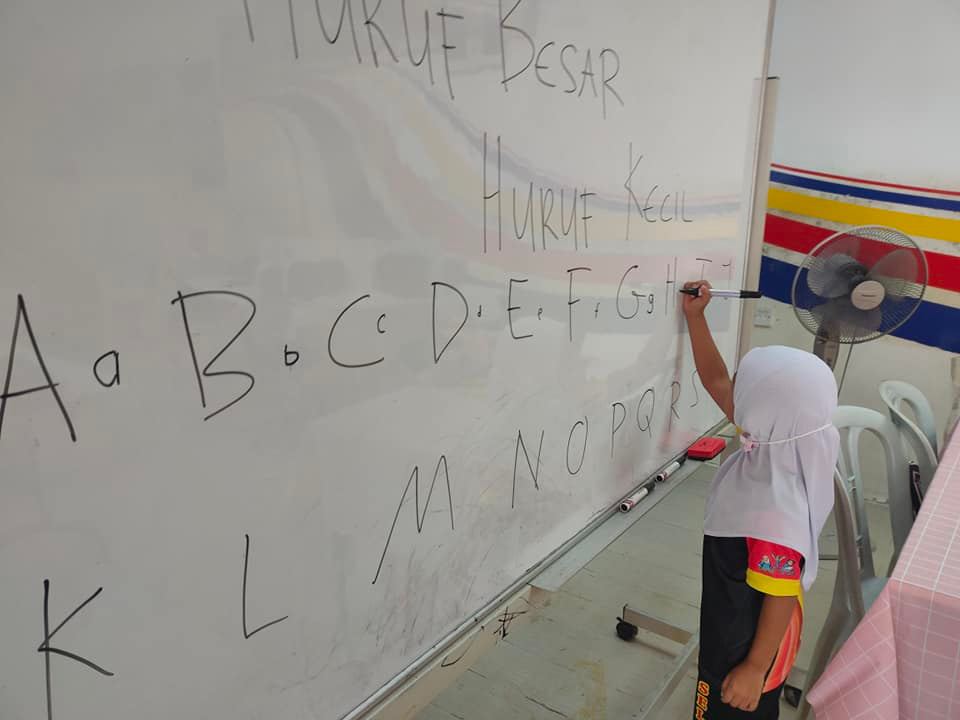 HURUF BESAR
HURUF KECIL
A a B b C c D d E e F f G g H I
K L M N O P Q R S